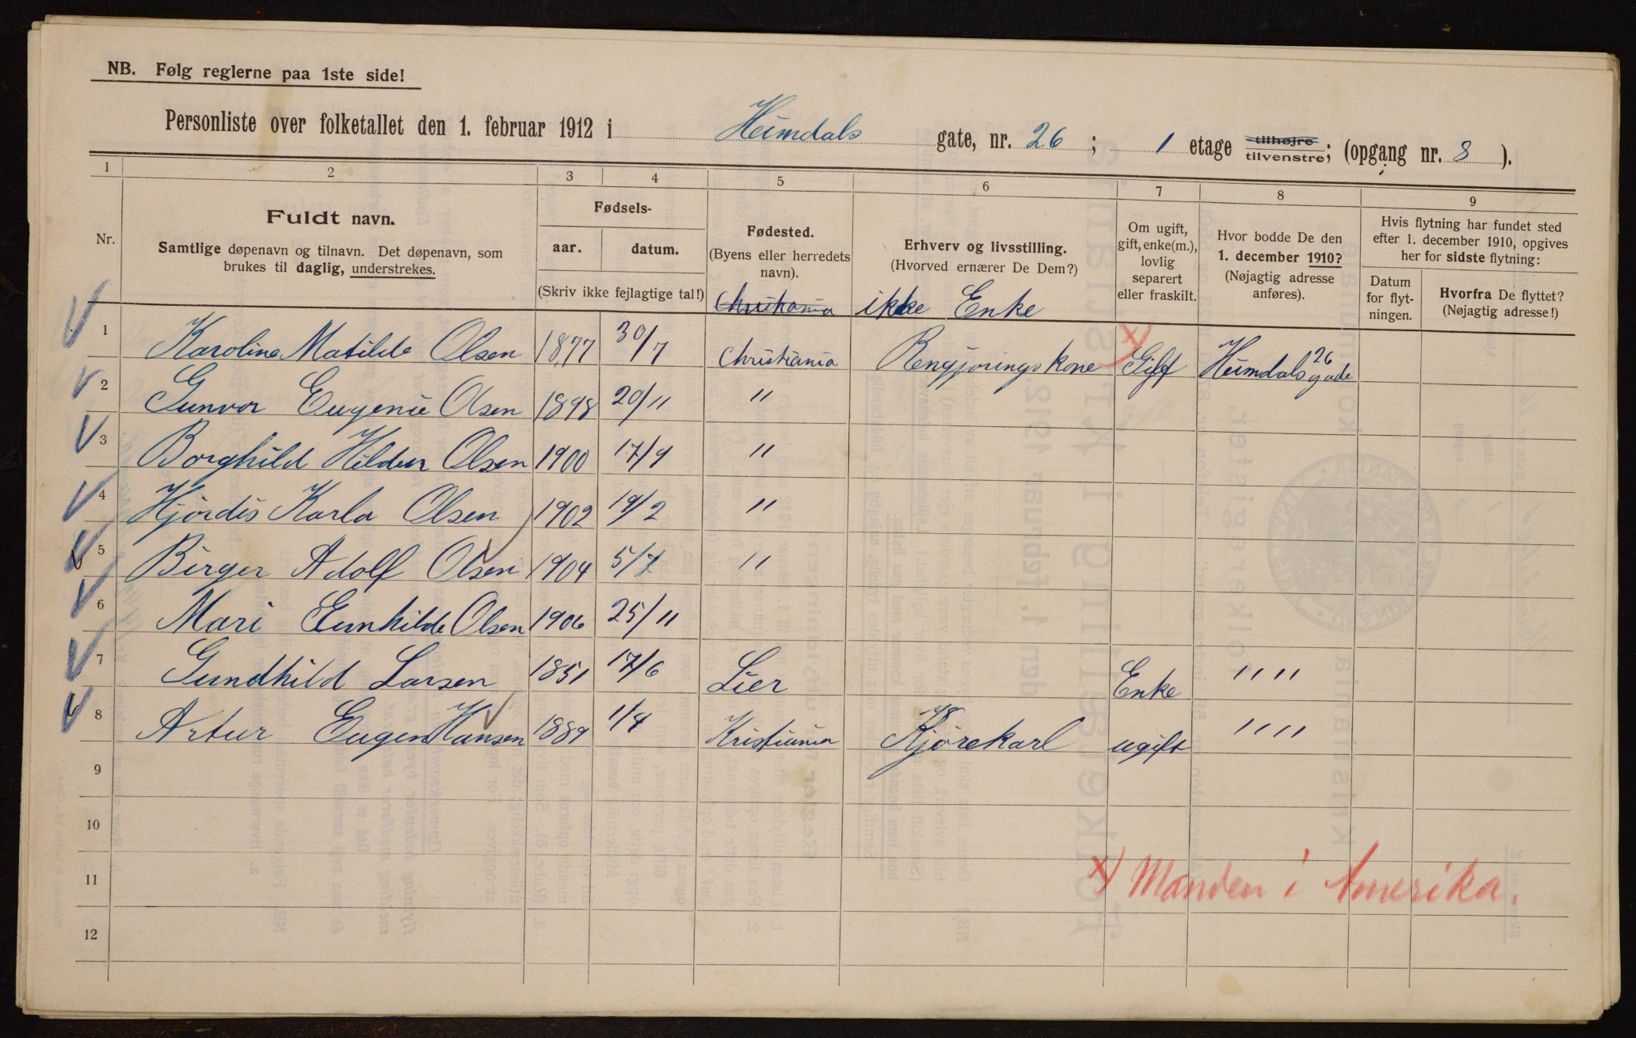 NB. Følg reglerne paa 1ste side!
Personliste over folketallet den 1. februar 1912 i Heimdals gate, nr. 26 ; 1 etage tilhøjre tilvenstre; (opgang nr. 8 ).
1 2 3 4 5 6 7 8 9
Nr.
Fuldt navn.
Samtlige døpenavn og tilnavn. Det døpenavn, som
brukes til daglig, understrekes.
Fødsels-
aar. datum.
(Skriv ikke fejlagtige tal!)
Fødested.
(Byens eller herredets
navn).
Erhverv og livsstilling.
(Hvorved ernærer De Dem?)
Om ugift,
gift, enke(m.),
lovlig
separert
eller fraskilt.
Hvor bodde De den
1. december 1910?
(Nøjagtig adresse
anføres).
Hvis flytning har fundet sted
efter 1. december 1910, opgives
her for sidste flytning:
Datum
for flyt-
ningen.
Hvorfra De flyttet?
(Nøjagtig adresse!)
Christiania ikke Enke
1 Karoline Matilde Olsen 1877 30/7 Christiania Rengjøringskone x) Gift Heimdals 26 gade
2 Gunvor Eugenie Olsen 1898 20/11 "
3 Borghild Hildur Olsen 1900 17/9 "
4 Hjördis Karla Olsen 1902 19/2 "
5 Birger Adolf Olsen 1904 5/7 "
6 Mari Olsen 1906 25/11
7 Gundhild Larsen 1851 17/6 Lier Enke " "
8 Artur Eugen Hansen 1889 1/4 Kristiania Kjørekarl ugift " "
9
10
11 x) Manden i Amerika.
12